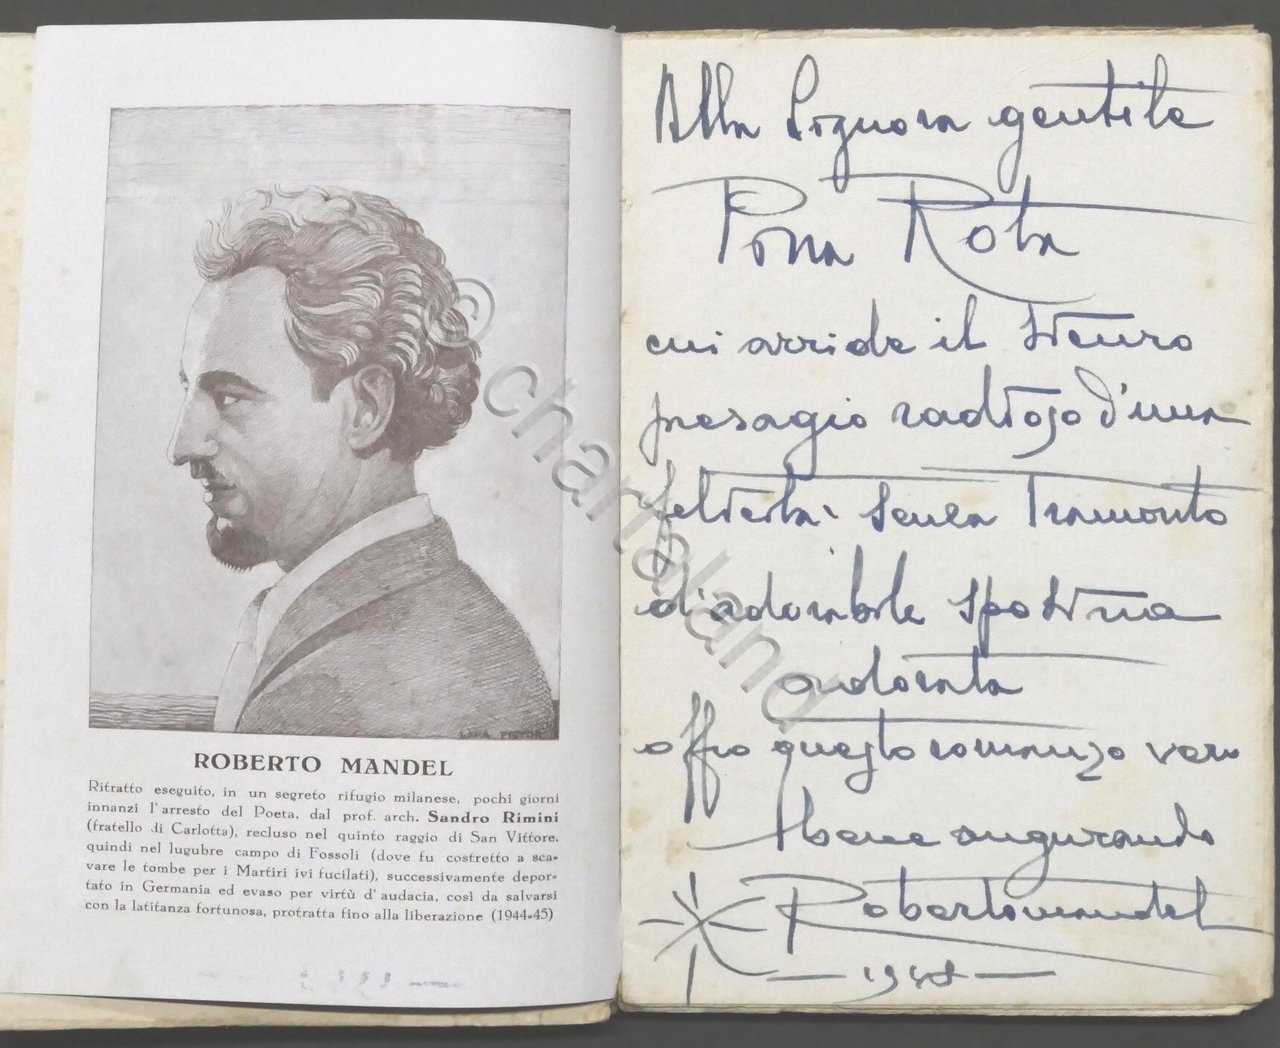 ROBERTO MANDEL
Ritratto eseguito, in un segreto rifugio milanese, pochi giorni
innanzi l'arresto del Poeta, dal prof. arch. Sandro Rimini
(fratello di Carlotta), recluso nel quinto raggio di San Vittore,
quindi nel lugubre campo di Fossoli (dove fu costretto a sca-
vare le tombe per i Martiri ivi fucilati), successivamente depor-
tato in Germania ed evaso per virtù d'audacia, così da salvarsi
con la latitanza fortunosa, protratta fino alla liberazione (1944-45)
Alla Signora gentile
Rota
cui arride il sicuro
presagio radioso d'una
felicità senza tramonto
d'adorabile sposina
adorata
offro questo romanzo vero
bene augurando
Roberto Mandel
— 1948 —
© chartaland